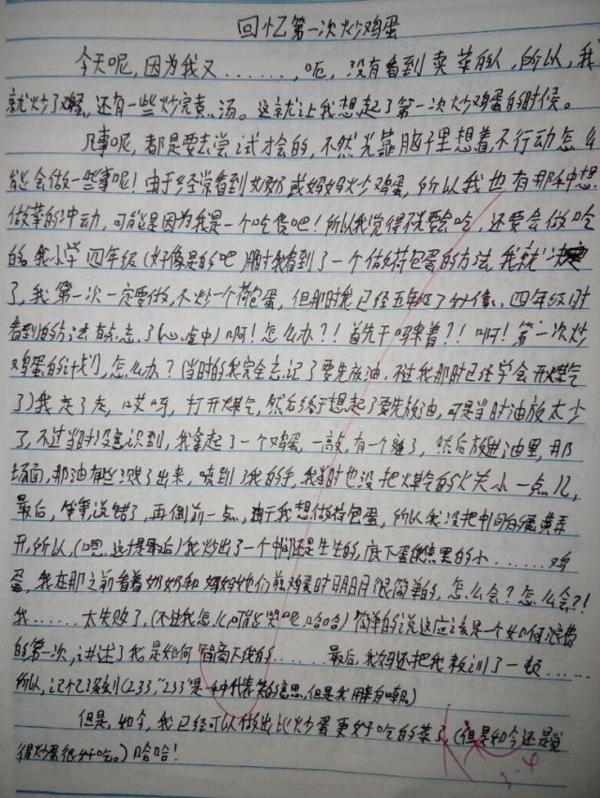 回忆第一次炒鸡蛋
今天呢,因为我又……,呃,没有看到卖菜的人,所以,我
就炒了鸡蛋,还有一些炒完素、汤。这就让我想起了第一次炒鸡蛋的时候。
凡事呢,都是要去尝试才会的,不然光靠脑子里想着,不行动怎么
能会做一些事呢!由于经常看到奶奶或妈妈炒鸡蛋,所以我也有那种想
做菜的冲动,可能是因为我是一个吃货吧!所以我觉得不光要会吃,还要会做吃
的。我小学四年级(好像是的吧)那时我看到了一个做荷包蛋的方法,我就决定
了,我第一次一定要做,不炒一个荷包蛋,但那时我已经五年级了,四年级时
看到的方法有点忘了(心虚中)啊!怎么办?!首先干吗来着?!啊!第一次炒
鸡蛋的计划,怎么办?(当时的我完全忘记了要先放油,不过我那时已经学会开煤气
了)我走了走,哎呀,打开煤气,然后终于想起了要先放油,可是当时油放太少
了,不过当时没意识到,我拿起了一个鸡蛋,一敲,有一个缝了,然后放进油里,那
场面,那油有些溅了出来,喷到了我的手,我当时也没把煤气的火关小一点儿,
最后,等等说错了,再倒前一点,由于我想做荷包蛋,所以我没把中间的蛋黄弄
开,所以,(嗯,这才是最后)我炒出了一个中间还是生生的,底下蛋已焦黑的小……鸡
蛋,我在那之前看着奶奶和妈妈他们煎鸡蛋时明明很简单的,怎么会?怎么会?!
我……太失败了,(不过我怎么可能哭呢,哈哈)简单的说这应该是一个如何浪费
的第一次,讲述了我是如何智商下线的……最后,我妈还把我教训了一顿……
所以,记忆深刻(233,“233”是一种代表笑的意思,但是我用来自嘲。)
但是,如今,我已经可以做出比炒蛋更好吃的菜了,(但是如今还是觉
得炒蛋很好吃。)哈哈!